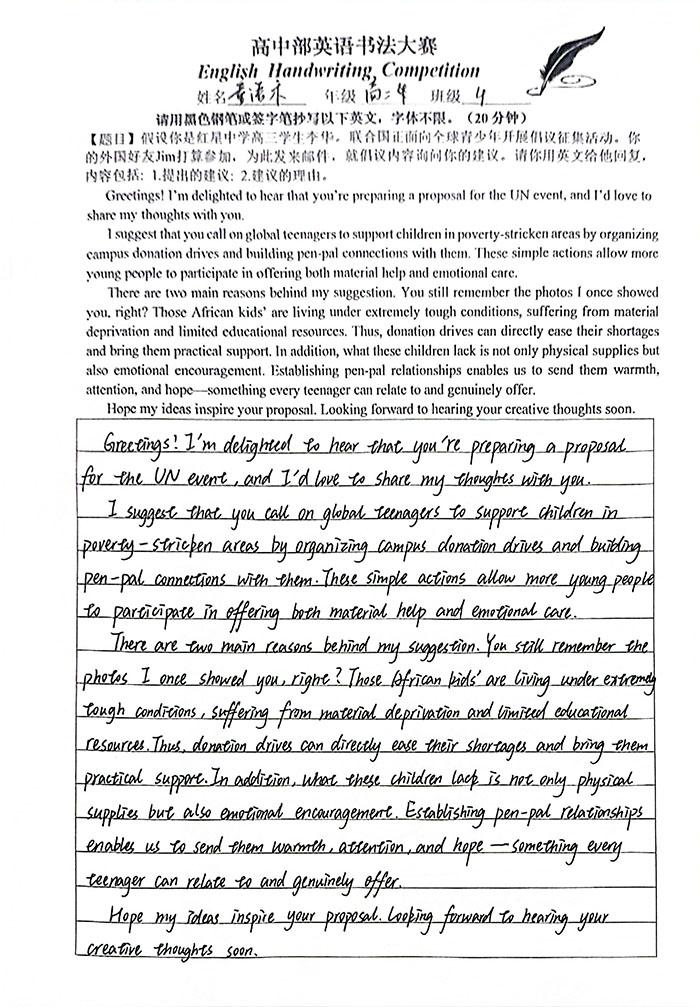 高中部英语书法大赛
English Handwriting Competition
姓名 年级 高三年 班级 4
请用黑色钢笔或签字笔抄写以下英文，字体不限。（20分钟）
【题目】假设你是红星中学高三学生李华。联合国正面向全球青少年开展倡议征集活动。你
的外国好友Jim打算参加，为此发来邮件，就倡议内容询问你的建议。请你用英文给他回复，
内容包括：1.提出的建议；2.建议的理由。
Greetings! I'm delighted to hear that you're preparing a proposal for the UN event, and I'd love to
share my thoughts with you.
I suggest that you call on global teenagers to support children in poverty-stricken areas by organizing
campus donation drives and building pen-pal connections with them. These simple actions allow more
young people to participate in offering both material help and emotional care.
There are two main reasons behind my suggestion. You still remember the photos I once showed
you, right? Those African kids' are living under extremely tough conditions, suffering from material
deprivation and limited educational resources. Thus, donation drives can directly ease their shortages
and bring them practical support. In addition, what these children lack is not only physical supplies but
also emotional encouragement. Establishing pen-pal relationships enables us to send them warmth,
attention, and hope—something every teenager can relate to and genuinely offer.
Hope my ideas inspire your proposal. Looking forward to hearing your creative thoughts soon.
Greetings! I'm delighted to hear that you're preparing a proposal
for the UN event, and I'd love to share my thoughts with you.
I suggest that you call on global teenagers to support children in
poverty-stricken areas by organizing campus donation drives and building
pen-pal connections with them. These simple actions allow more young people
to participate in offering both material help and emotional care.
There are two main reasons behind my suggestion. You still remember the
photos I once showed you, right? Those African kids' are living under extremely
tough conditions, suffering from material deprivation and limited educational
resources. Thus, donation drives can directly ease their shortages and bring them
practical support. In addition, what these children lack is not only physical
supplies but also emotional encouragement. Establishing pen-pal relationships
enables us to send them warmth, attention, and hope — something every
teenager can relate to and genuinely offer.
Hope my ideas inspire your proposal. Looking forward to hearing your
creative thoughts soon.